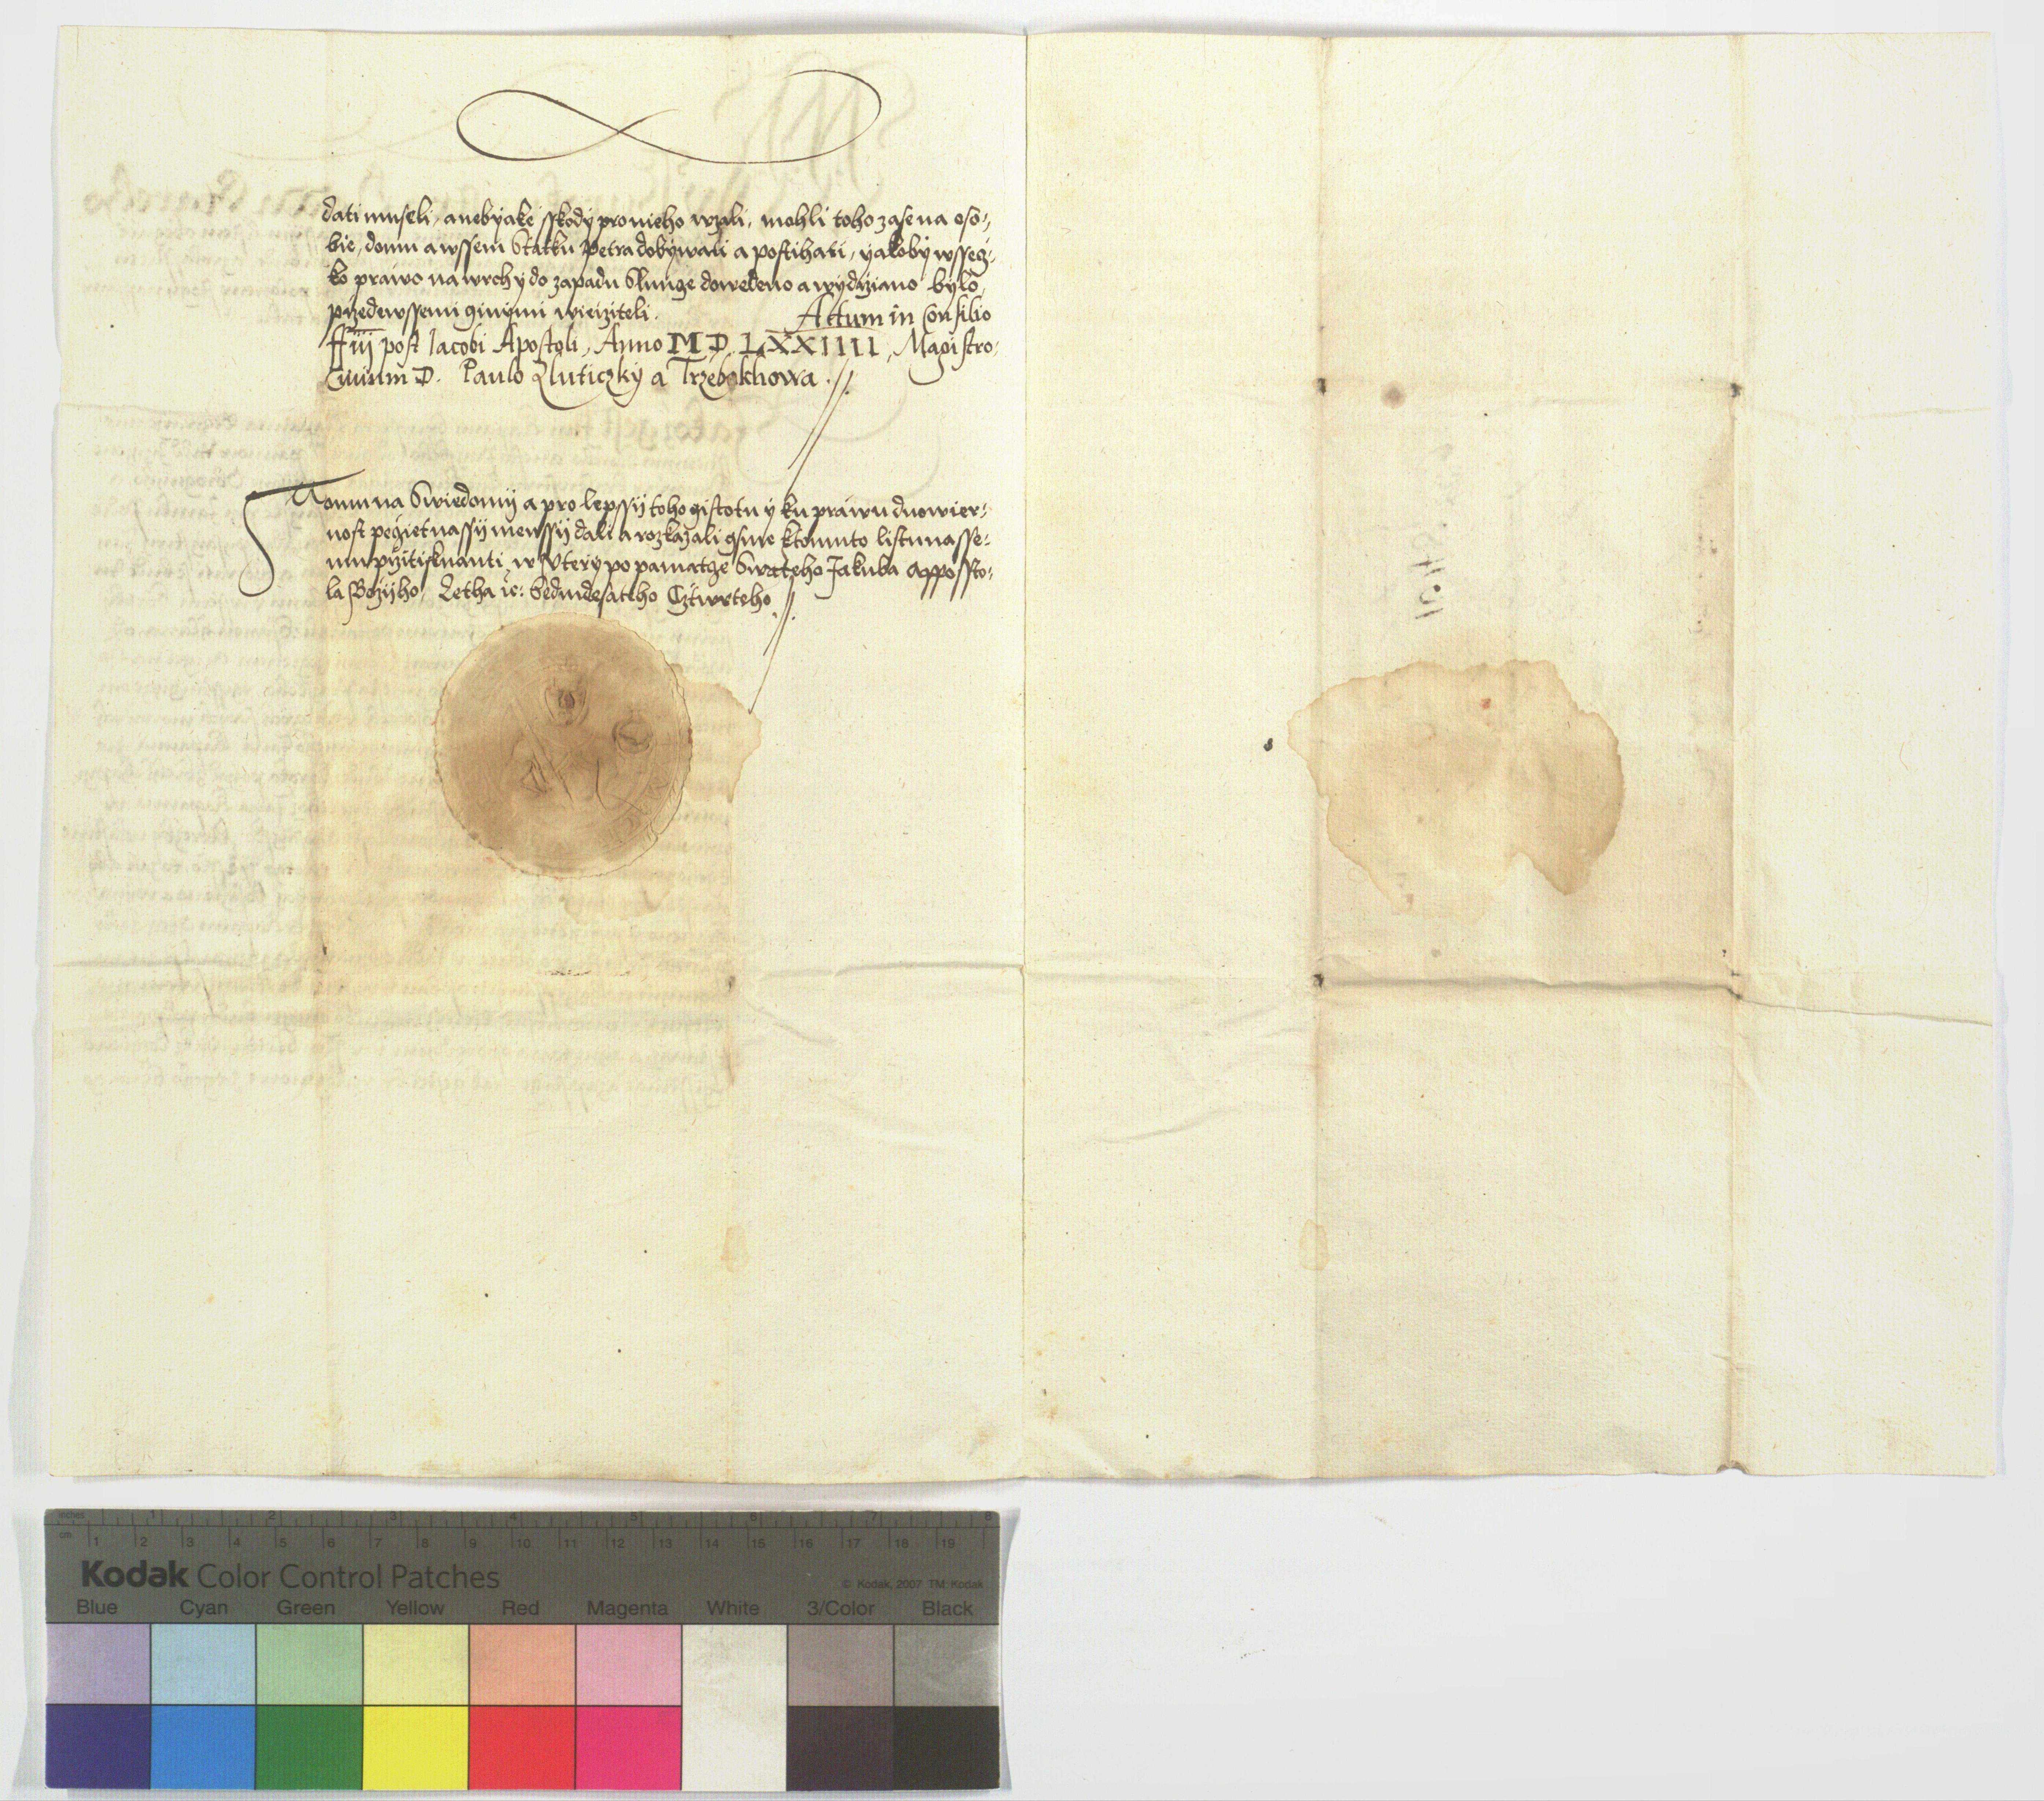 dati museli, aneb yake sskody pro nieho wzali, mohli toho zase na oso-
bie, domu a wssem Statku Petra dobywati a postihati, yakoby wssecz-
ko prawo na wrch y do zapadu Slunze dowedeno a wydrziano bylo,
przedewssemi ginymi wierziteli. Actum in Consilio
post Jacobi Apostoli, Anno MD LXXIIII, Magistro-
Civium D. Paulo Zluticzky a Trzebokhowa.
Tomu na Swiedomij a pro lepssij toho gistotu y ku prawu duowier-
nost peczet nassij menssij dali a rozkazali gsme k tomuto listu nasse-
mu przitisknauti, w Uterij po pamatze Swateho Jakuba Appossto-
la Bozijho, Letha ic: Sedmdesateho Cztwrteho.
inches 1 2 3 4 5 6 7 8
cm 1 2 3 4 5 6 7 8 9 10 11 12 13 14 15 16 17 18 19
Kodak Color Control Patches © Kodak, 2007 TM: Kodak
Blue Cyan Green Yellow Red Magenta White 3/Color Black